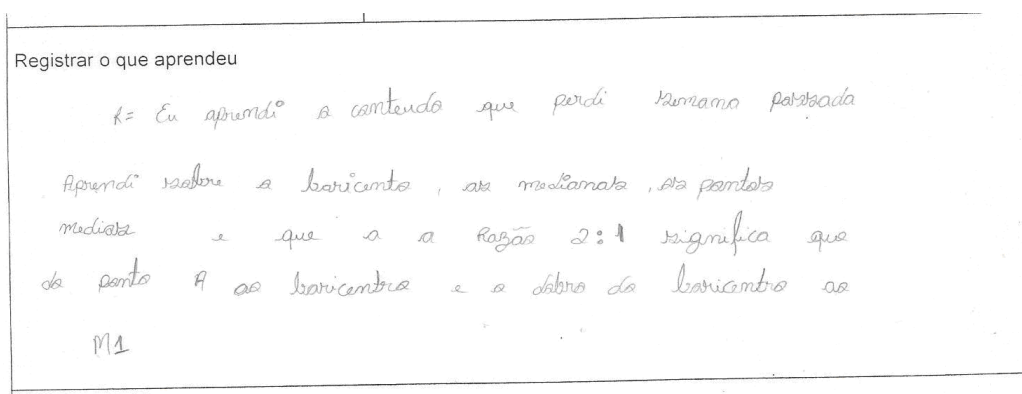 Registrar o que aprendeu
R= Eu aprendi o conteudo que perdi semana passada
Aprendi sobre o baricento, as medianas, os pontos
medios e que a a Razão 2:1 significa que
do ponto A ao baricentro e o dobro do baricentro ao
M1